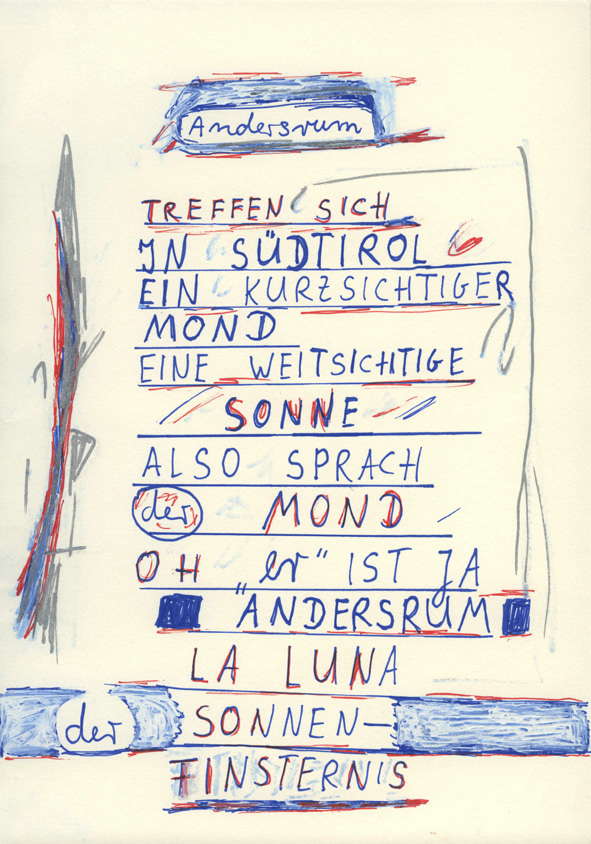 Andersrum
TREFFEN SICH
IN SÜDTIROL
EIN KURZSICHTIGER
MOND
EINE WEITSICHTIGE
SONNE
ALSO SPRACH
der MOND
OH „er“ IST JA
„ANDERSRUM
LA LUNA
der SONNEN—
FINSTERNIS